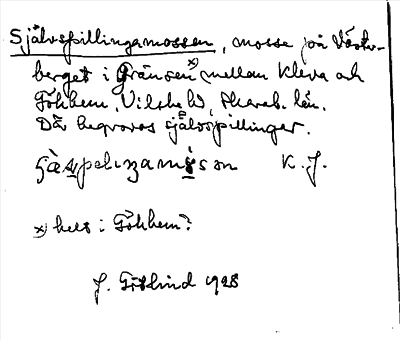 Självspillingamossen, mosse på Väster-
berget i Gränsen x) mellan Kleva och
Tökhem, Vilske hd, Skarab. län.
Där begravas självspillingar.
K. J.
x) hels i Tökhem?
J. Götlind 1928